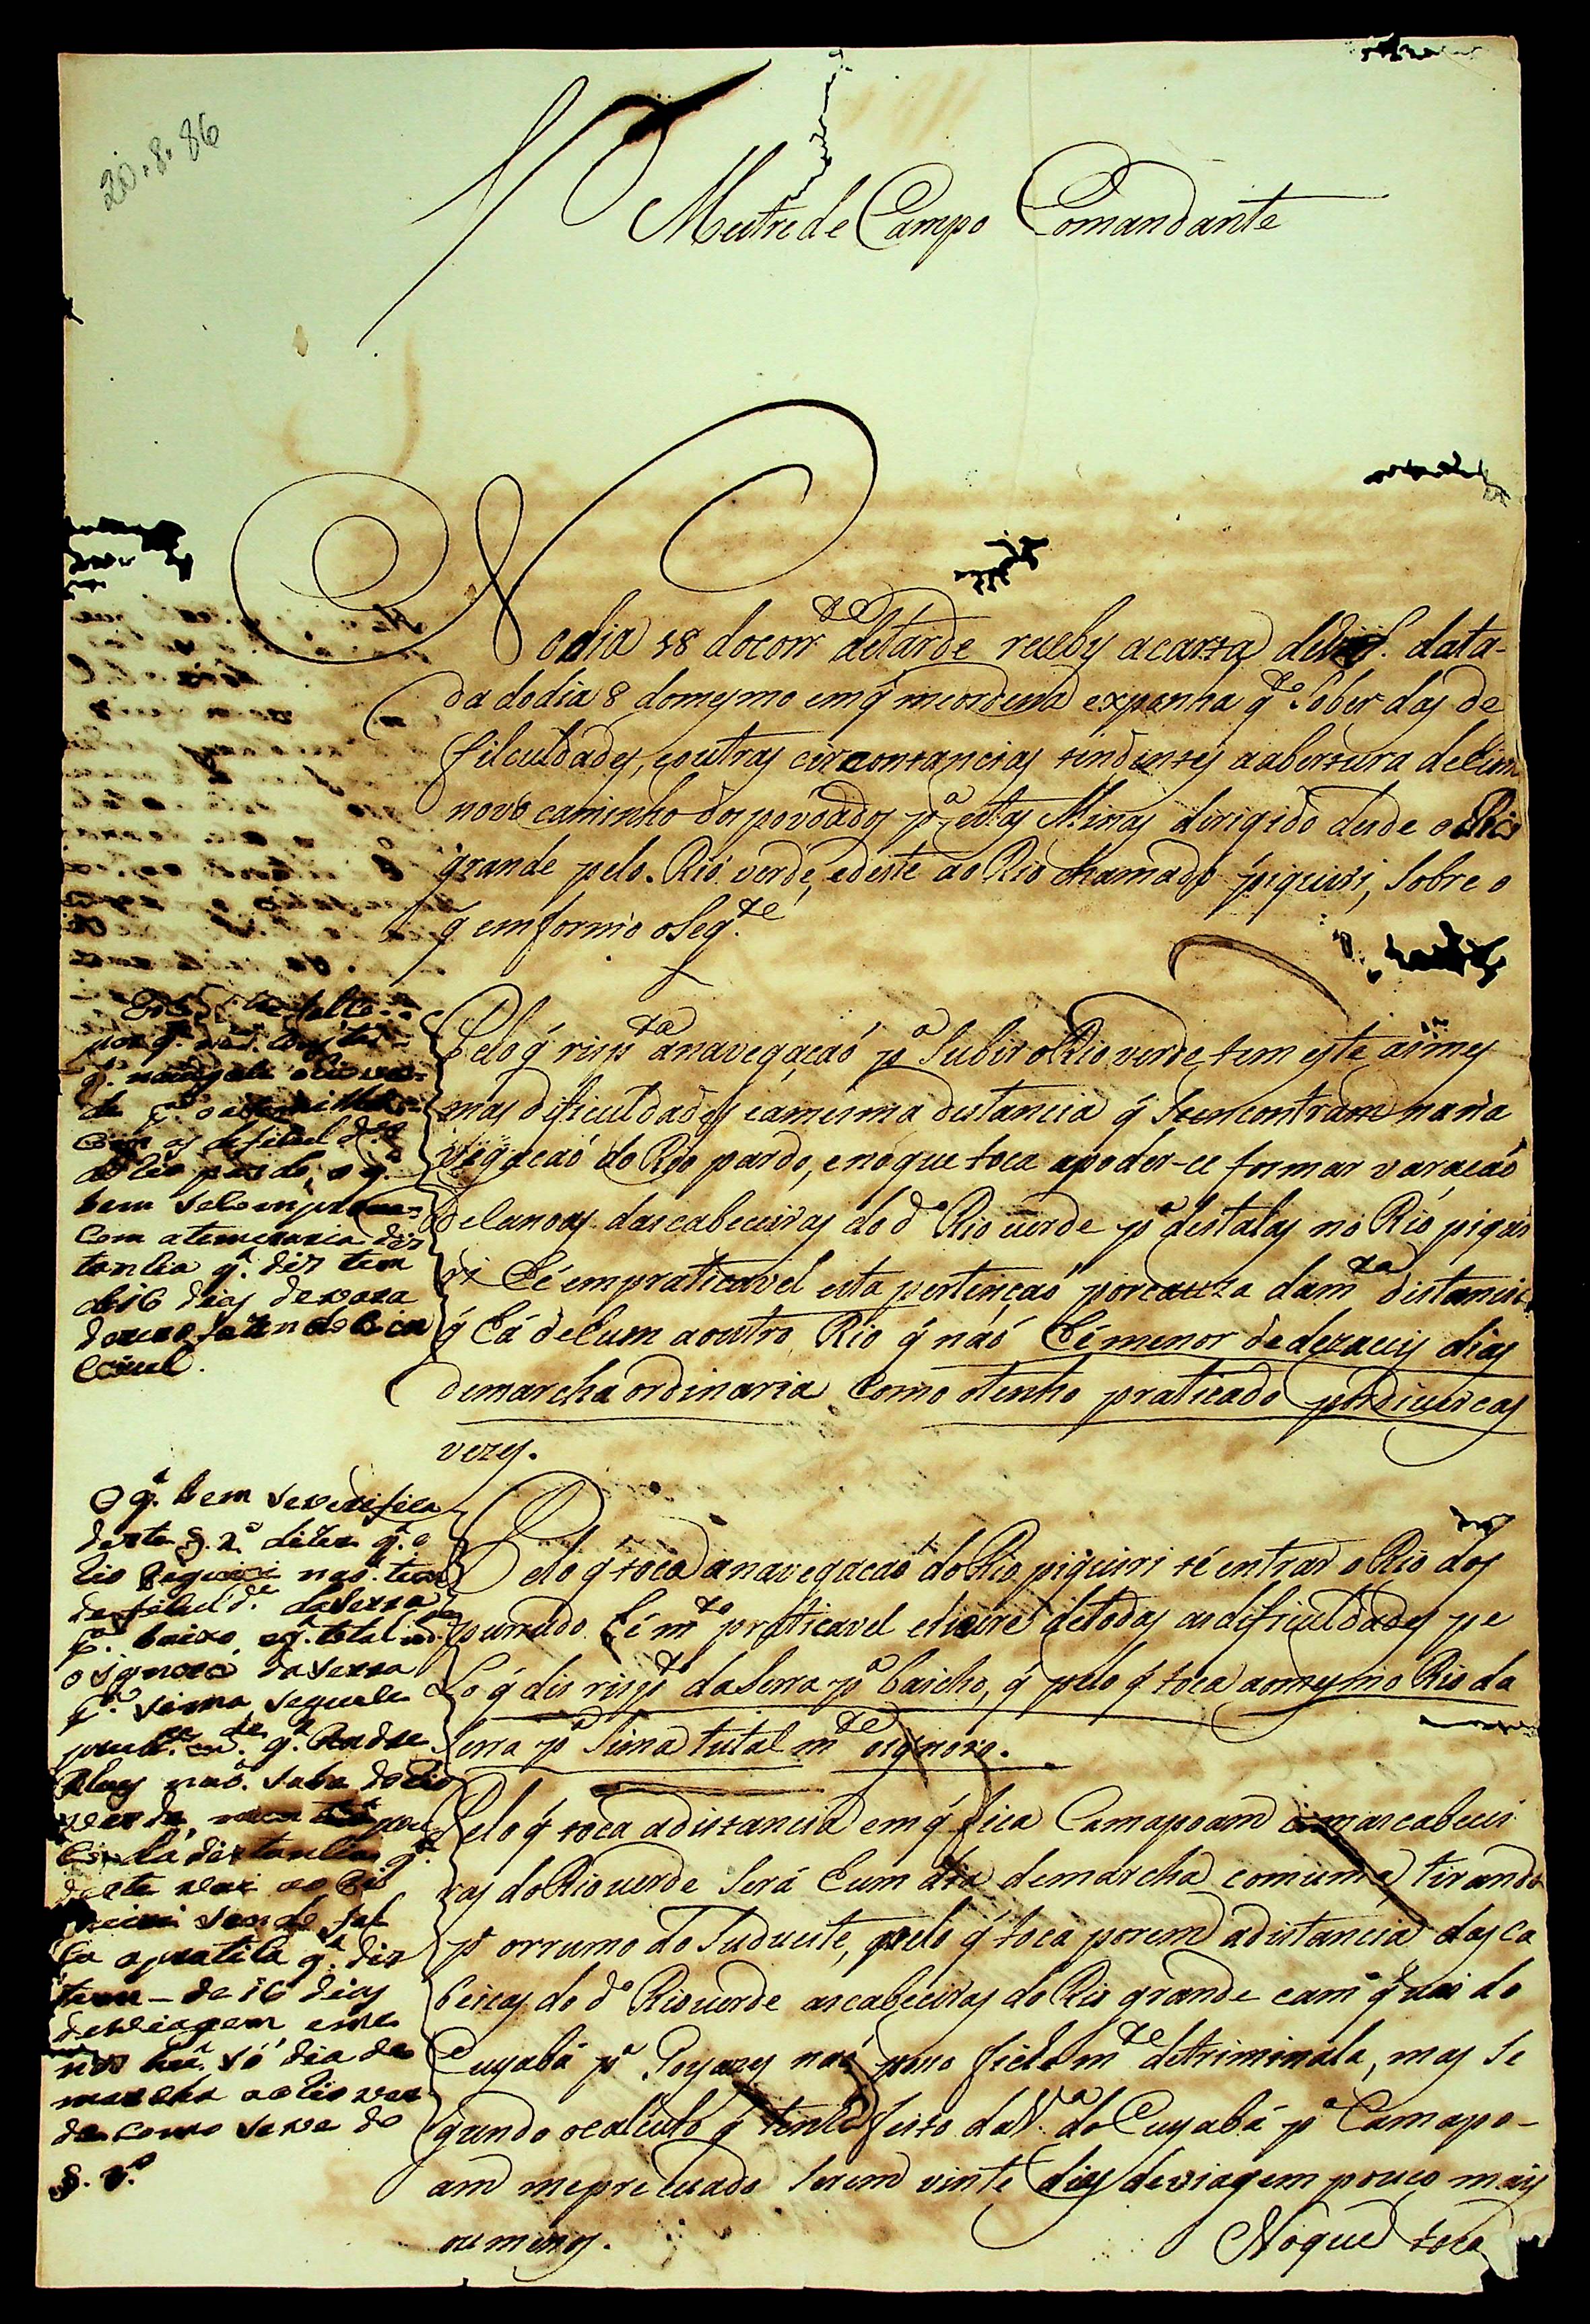 20.8.86
Mestre de Campo Comandante
No dia 18 do corr.te de tarde receby a carta de data-
da do dia 8 do mesmo em q' me ordena exponha q.to Sober das de
filculdades, e outras circontancias tendentes a abertura de hum
novo caminho dos povoados p.a estas Minas dirigido desde o Rio
grande pelo Rio verde, e deste ao Rio chamado piquiri, Sobre o
q' emformo o Seg.te
Pelo q' risp.ta a navegaçaó p.a Subir o Rio verde tem este as mes
mas dificuldades e a mesma distancia q' Se encontram na na
vegacaó do Rio pardo, e no que toca a poder-ce formar varacaó
de canoas das cabeceiras do d.o Rio verde p.a destalas no Rio piqui
ri hé empraticavel esta pertençaó por cauza da m.ta distancia
q' há de hum a outro Rio q' naó hé menor de dezaceis dias
de marcha ordinaria Como o tenho praticado por diuercas
vezes.
Pelo q' toca a navegacaó do Rio piquiri té entrar o Rio dos
purrudo hé m.to praticavel e livre de todas as dificuldades pe
lo q' dis risp.to da Serra p.a baicho, q' pelo q' toca ao mesmo Rio da
Serra p.a Sima tutal m.te o ignoro.
Pelo q' toca a distancia em q' fica Camapoam as cabecei
ras do Rio uerde Será hum dia de marcha comum e tirando
p.a o rrumo do Sudueste, pelo q' toca porem a distancia das ca
beiras do d.o Rio uerde as cabeceiras do Rio grande e cam.o q' vai do
Cuyabá p.a Goyazes naó poso fiel m.te detriminala, mas Se
gundo o calculo q' tenho feito da V.a do Cuyabá p.a Camapo-
am me preluado Serem vinte dias de viagem pouco mais
ou menos.
No que toca
por q' naó
de p.a o
com as deficul d.es
do Rio pardo, o q'
bem se comprova
com a temeraria dis
tancia q' dis tem
de 16 dias de vara
douro
O q' bem se verifica
deste §. 2.o dizer q' o
Rio Piquiri naó tem
deficuld.e da Serra
p.a baixo, e q' total m.te
o ignora da Serra
p.a sima segue-ce
q' Andre
Alves naó sabe do Rio
verde, nem
da distancia q'
deste vai ao Pi
quiri sendo fal
ca a pratica q' dis
tem - de 16 dias
de viagem e me
nos hú só dia de
marcha ao Rio ver
de como se ve do
§. 3.o